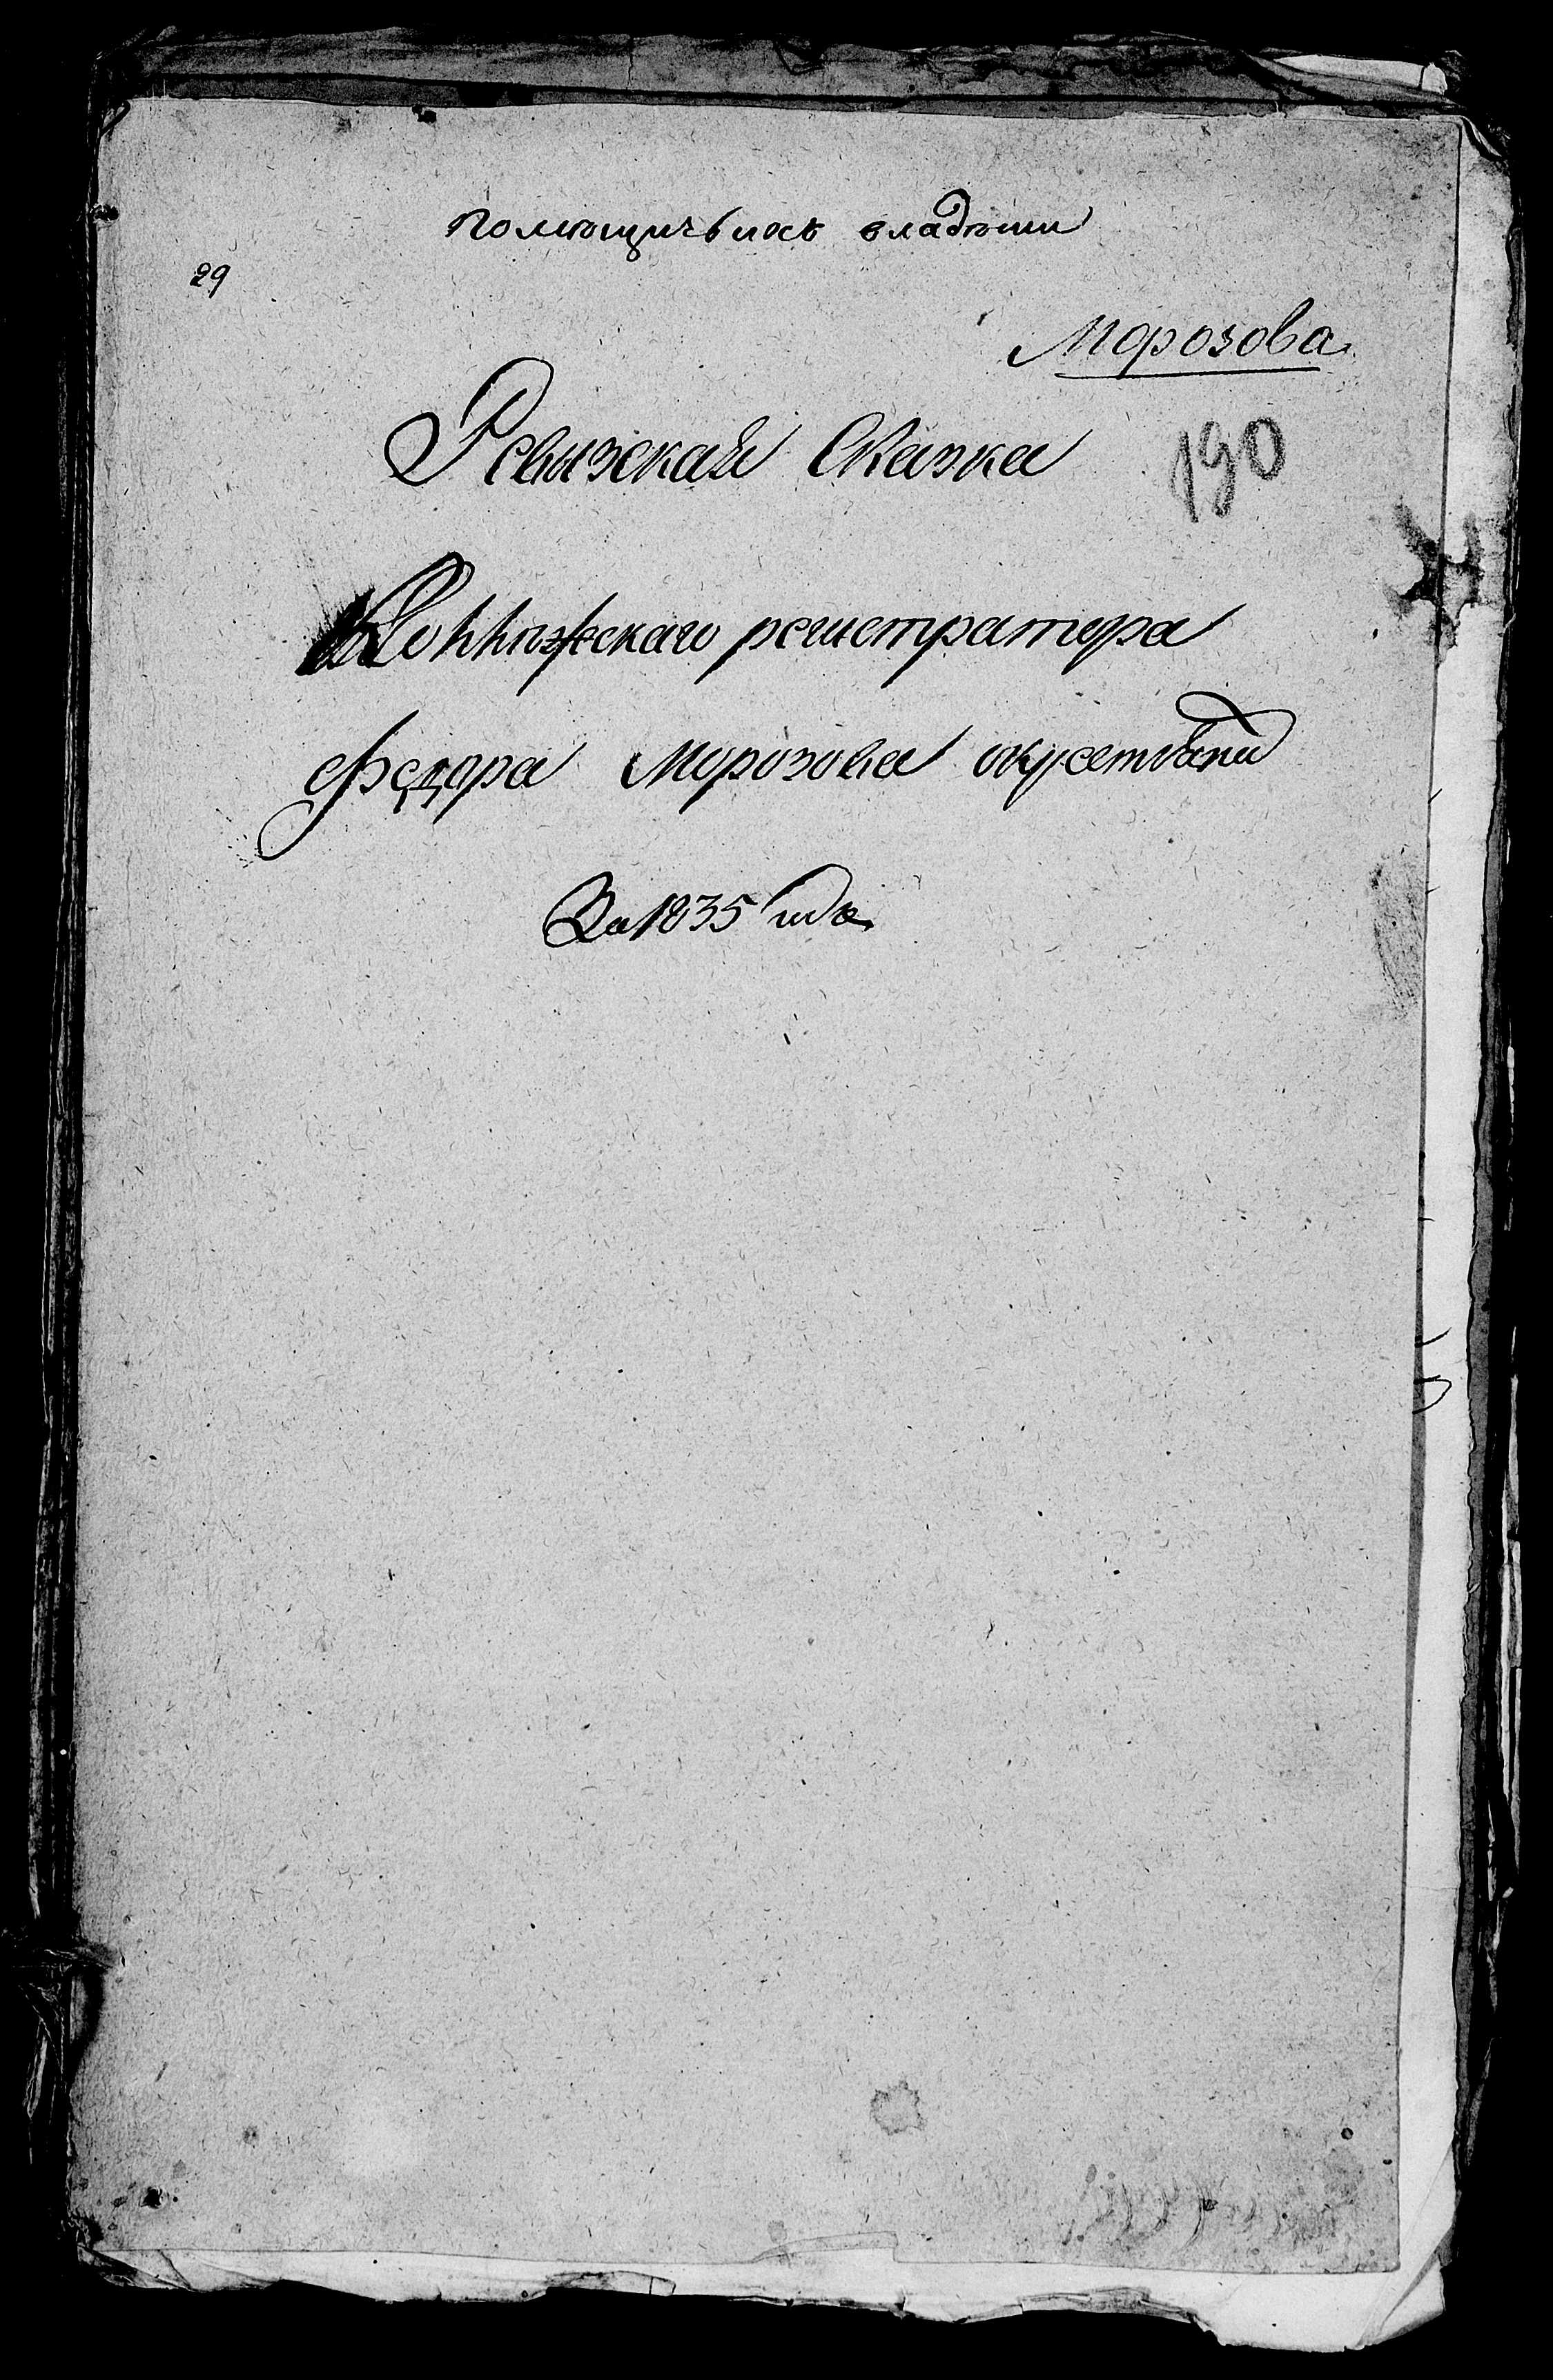 помѣщичьихъ владѣнiи
29
Морозова
Ревизская Сказка
190
Коллежскаго регистратора
Федора Морозова
За 1835 годъ